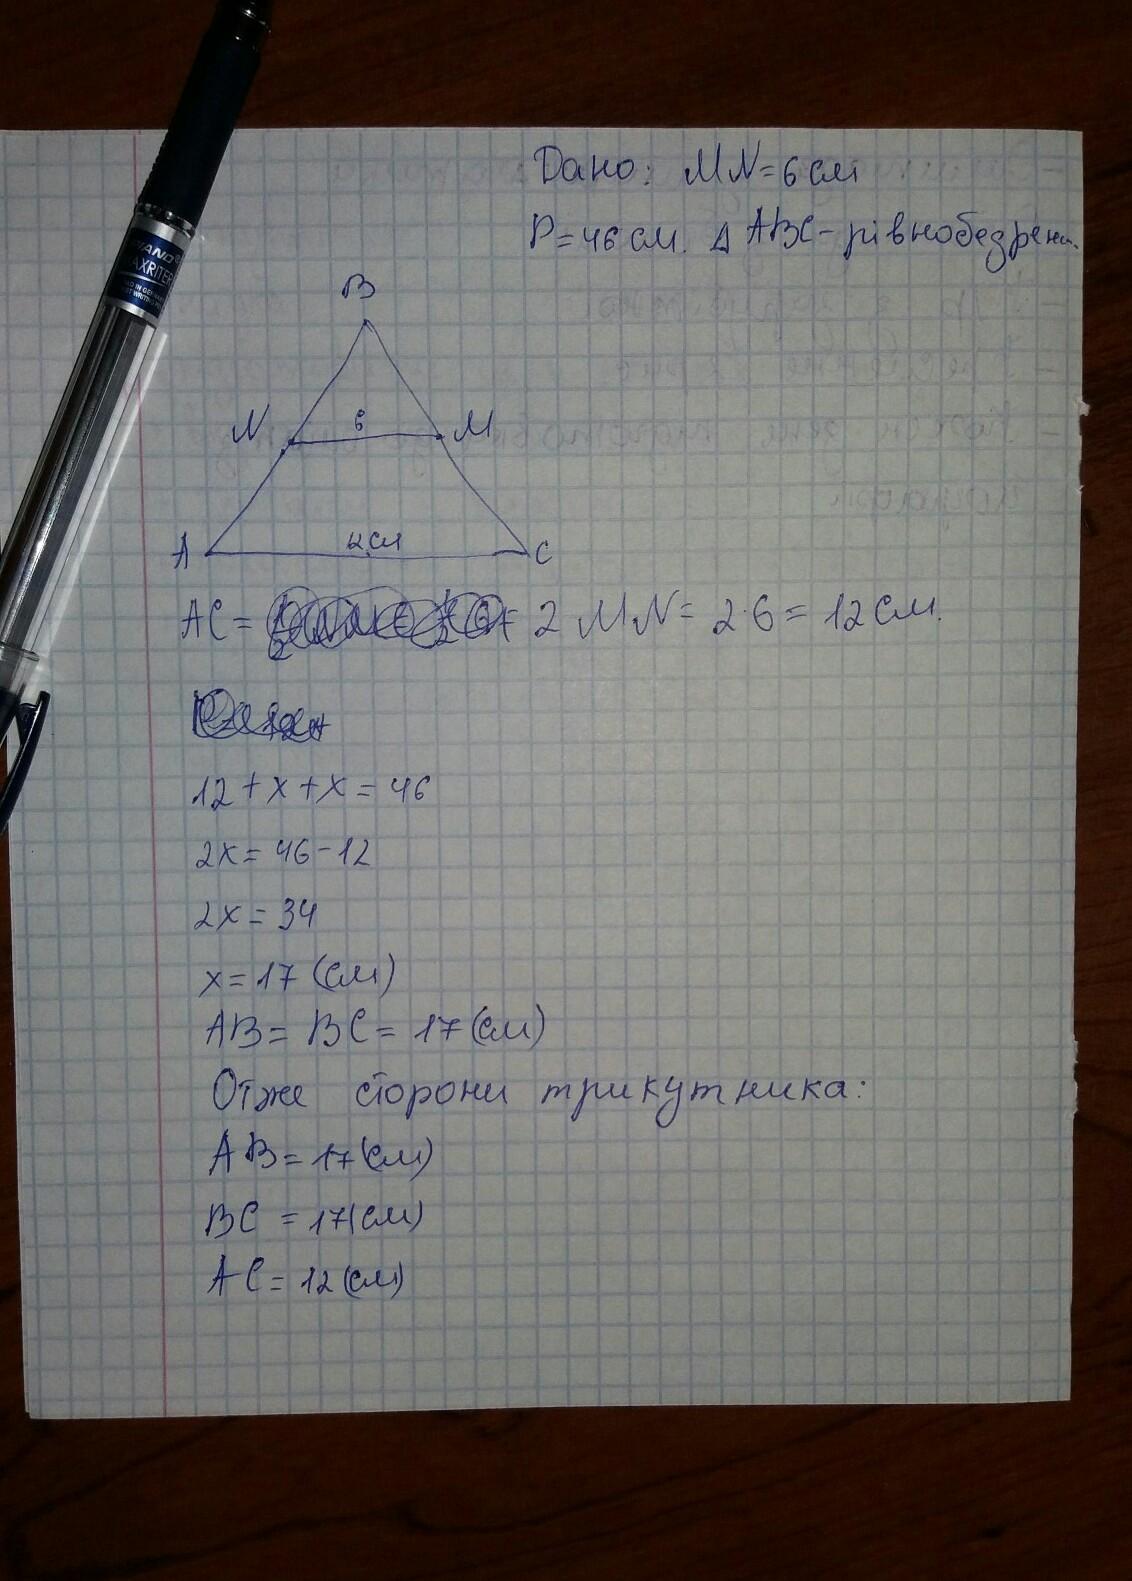 Дано: MN=6см
P=46см. Δ ABC-рівнобедрен.
B
N 6 M
A 12см C
AC= = 2 MN= 2·6= 12см.
12+x+x=46
2x=46-12
2x=34
x=17(см)
AB=BC=17(см)
Отже сторони трикутника:
AB=17(см)
BC=17(см)
AC=12(см)